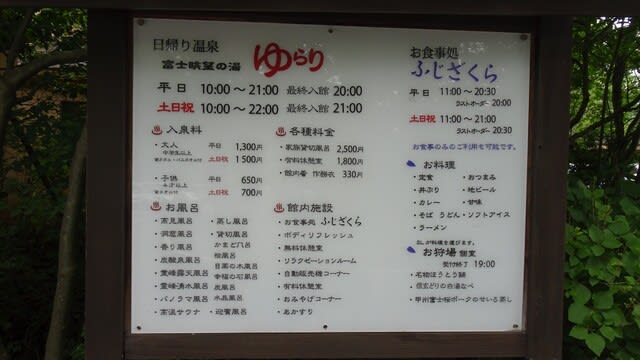 日帰り温泉
富士眺望の湯 ゆらり
平日 10:00〜21:00 最終入館 20:00
土日祝 10:00〜22:00 最終入館 21:00
入泉料
・大人 平日 1,300円
中学生以上
土日祝 1500円
・子供 平日 650円
土日祝 700円
各種料金
・家族貸切風呂 2,500円
・有料休憩室 1,800円
・館内着 作務衣 330円
お風呂
・高見風呂
・洞窟風呂
・香り風呂
・炭酸泉風呂
・霊峰露天風呂
・霊峰湧水風呂
・パノラマ風呂
・高温サウナ
・蒸し風呂
・貸切風呂
かまど八台
桧風呂
目薬の木風呂
幸福の石風呂
炭風呂
水晶風呂
・迎賓風呂
館内施設
・お食事処 ふじざくら
・ボディリフレッシュ
・無料休憩室
・リラクゼーションルーム
・自動販売機コーナー
・有料休憩室
・おみやげコーナー
・あかすり
お食事処
ふじざくら
平日 11:00〜20:30
ラストオーダー 20:00
土日祝 11:00〜21:00
ラストオーダー 20:30
お食事のみのご利用も可能です。
お料理
・定食
・丼ぶり
・カレー
・そば うどん
・ラーメン
・おつまみ
・地ビール
・甘味
・ソフトアイス
SLが料理を運びます。
お狩場 個室
受付終了 19:00
・名物ほうとう鍋
・信玄どりの白湯なべ
・甲州富士桜ポークのせいろ蒸し